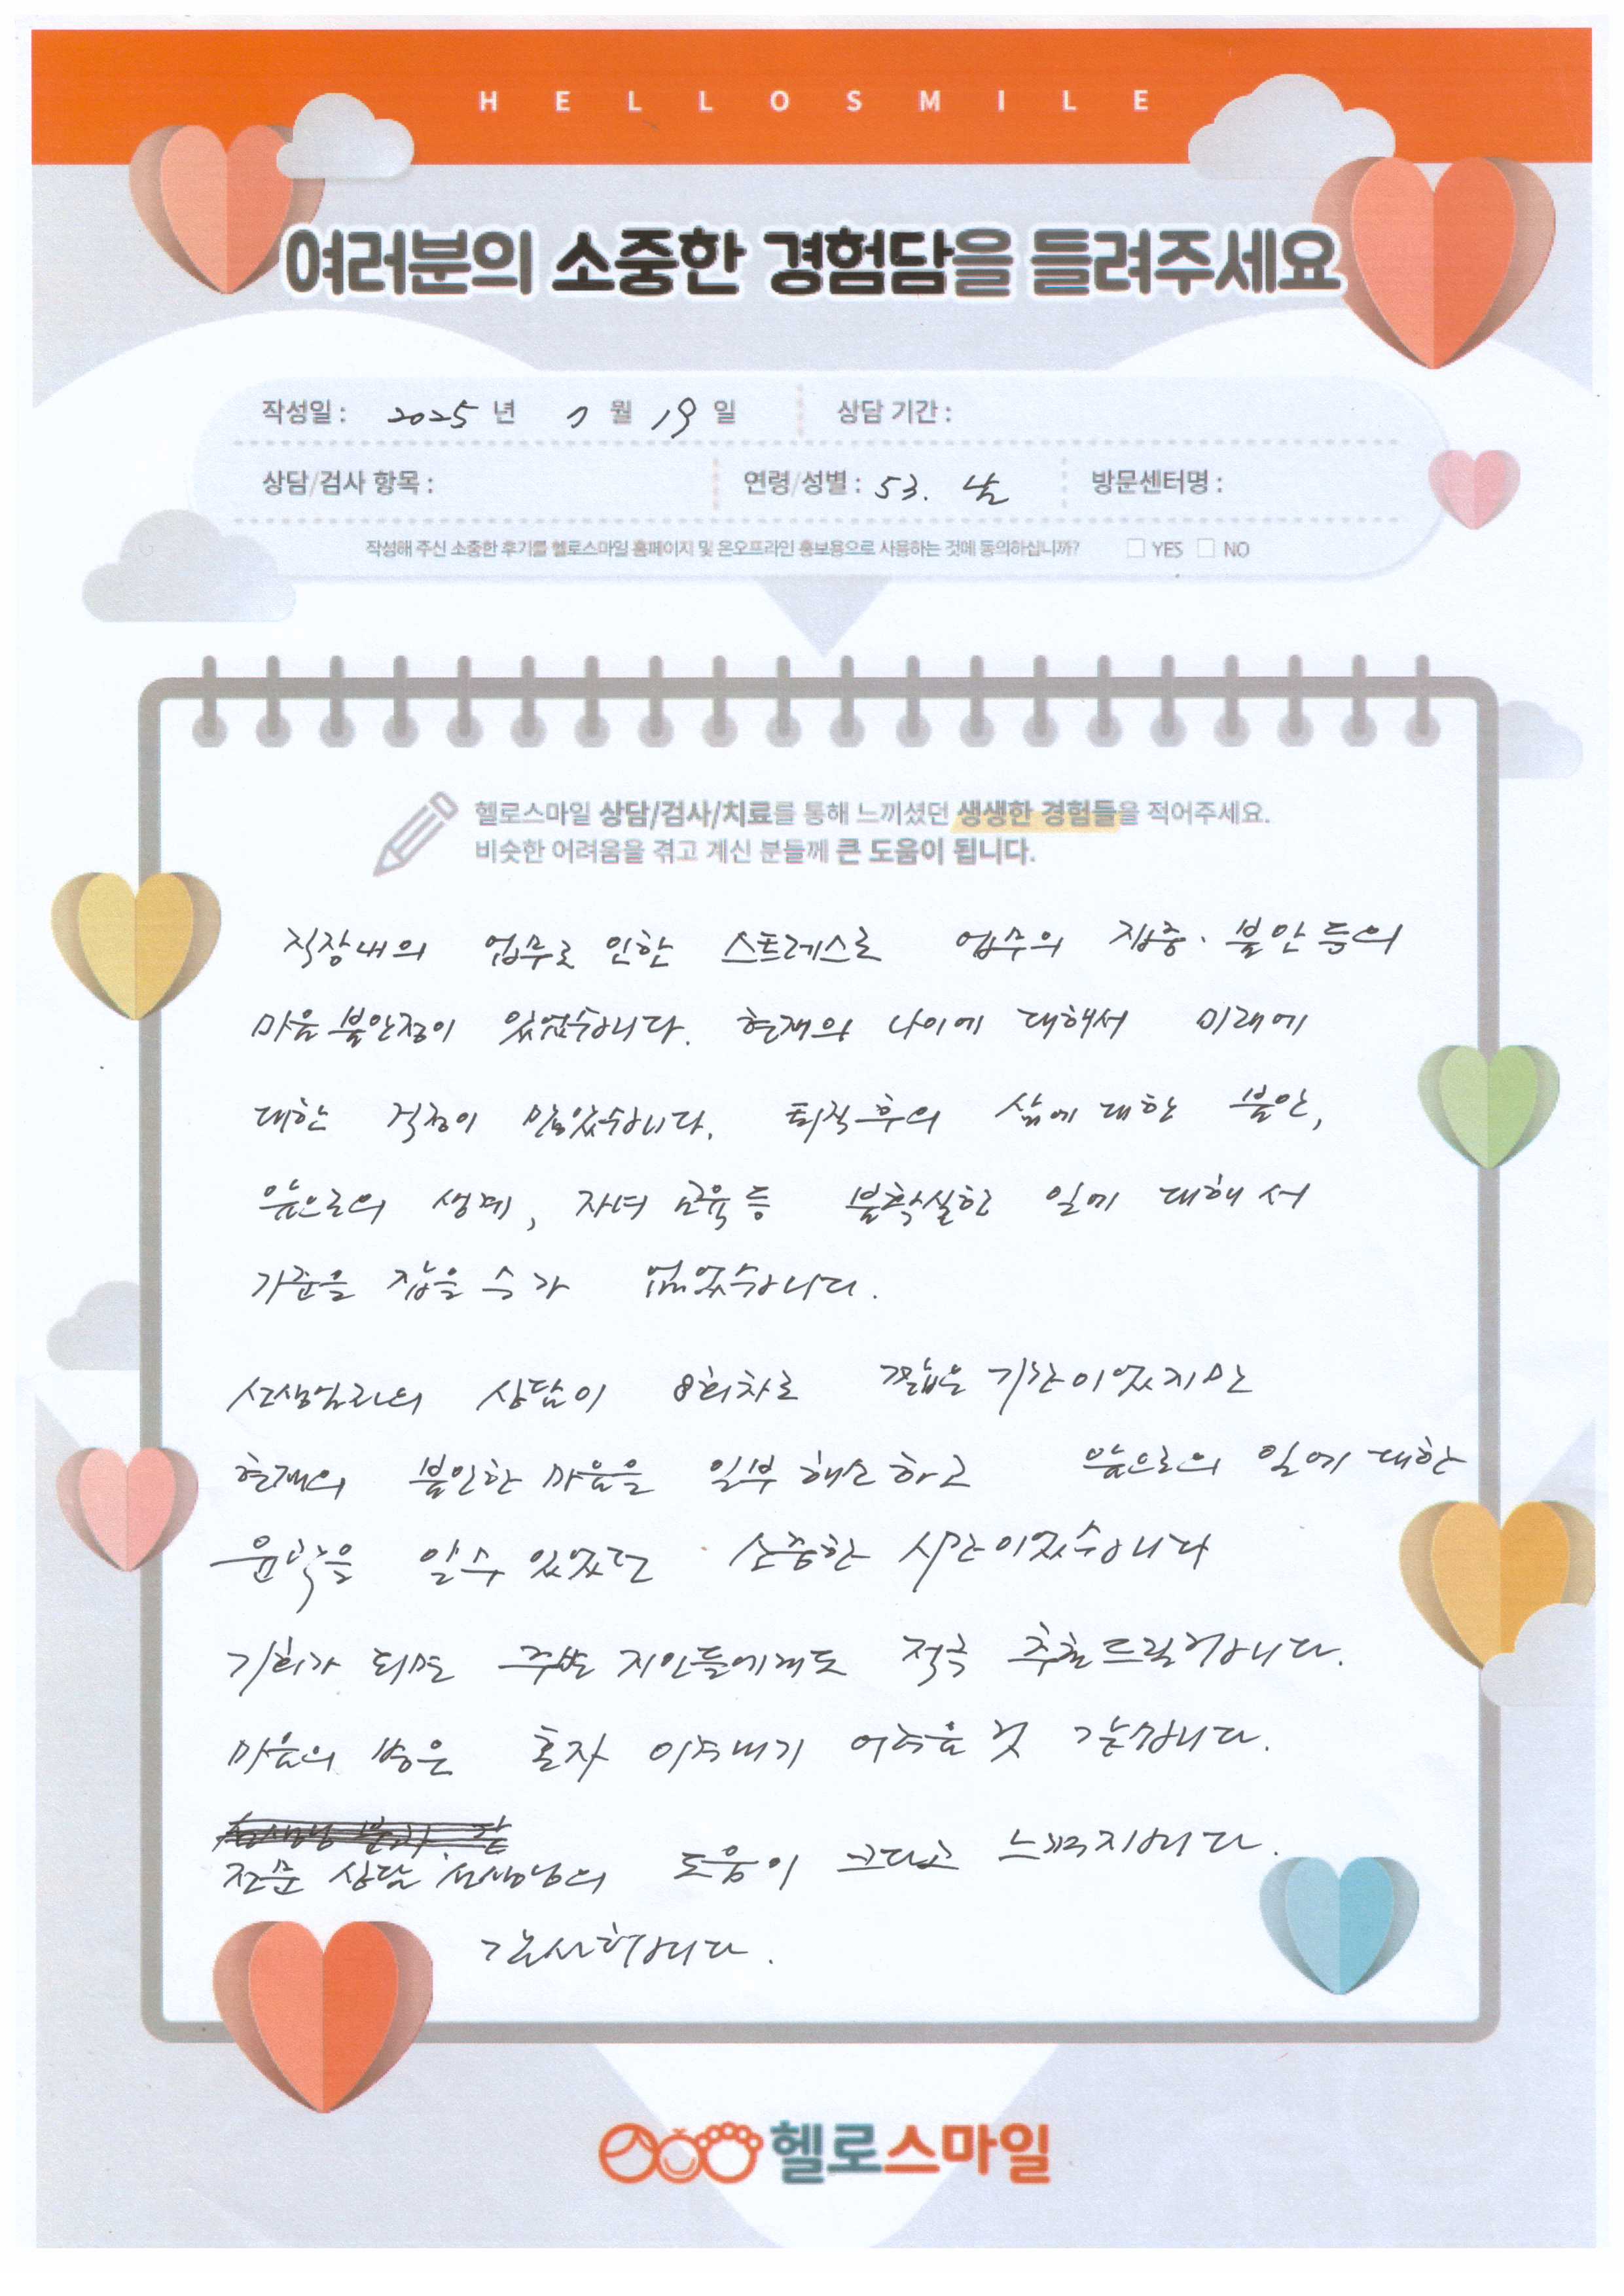 HELLOSMILE
여러분의 소중한 경험담을 들려주세요
작성일 : 2025 년 7 월 19 일 상담 기간 :
상담/검사 항목 : 연령/성별 : 53. 남 방문센터명 :
작성해 주신 소중한 후기를 헬로스마일 홈페이지 및 온오프라인 홍보용으로 사용하는 것에 동의하십니까? YES NO
헬로스마일 상담/검사/치료를 통해 느끼셨던 생생한 경험들을 적어주세요.
비슷한 어려움을 겪고 계신 분들께 큰 도움이 됩니다.
직장내의 업무로 인한 스트레스로 업무의 집중. 불안 등의
마음 불안정이 있었습니다. 현재의 나이에 대해서 미래에
대한 걱정이 많았습니다. 퇴직 후의 삶에 대한 불안,
앞으로의 생계, 자녀 교육 등 불확실한 일에 대해서
기준을 잡을 수가 없었습니다.
선생님과의 상담이 8회차로 짧은 기간이었지만
현재의 불안한 마음을 일부 해소하고 앞으로의 일에 대한
윤곽을 알수 있었던 소중한 시간이었습니다
기회가 되면 주변 지인들에게도 적극 추천드릴겁니다.
마음의 병은 혼자 이겨내기 어려울 것 같습니다.
전문 상담 선생님의 도움이 크다고 느껴집니다.
감사합니다.
헬로스마일